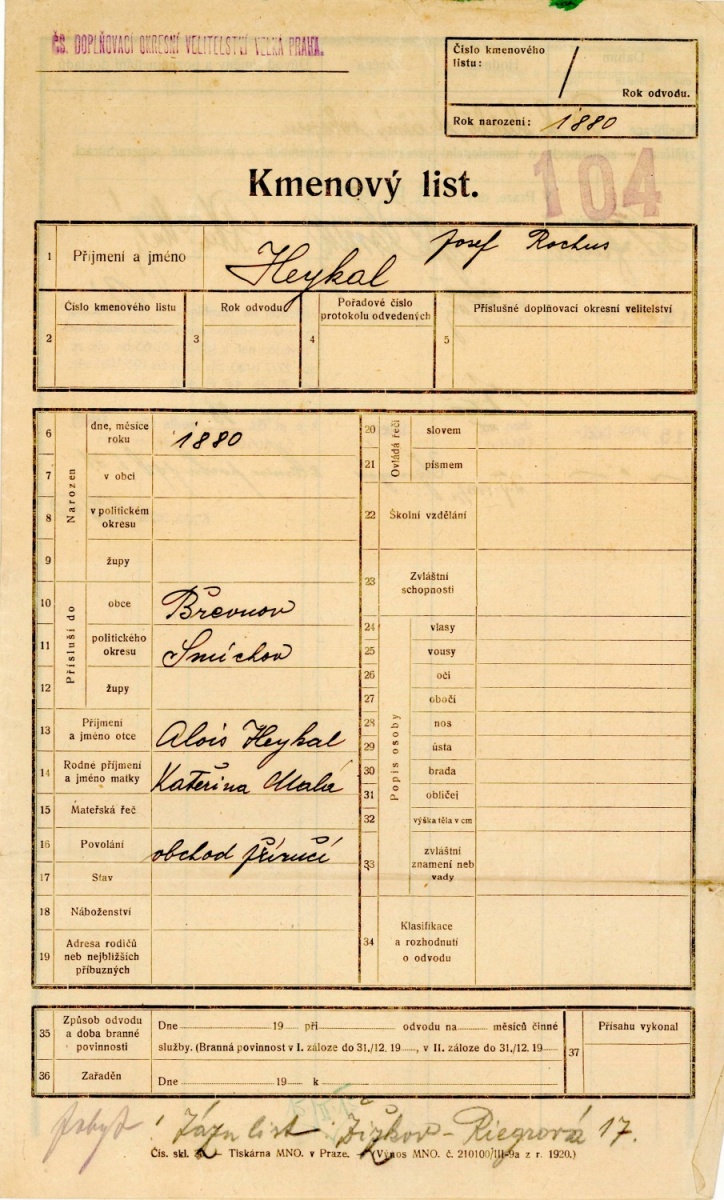 ČS. DOPLŇOVACÍ OKRESNÍ VELITELSTVÍ VELKÁ PRAHA.
Číslo kmenového listu: /
Rok odvodu.
Rok narození: 1880
Kmenový list.
104
1 Příjmení a jméno Heykal Josef Rochus
2 Číslo kmenového listu
3 Rok odvodu
4 Pořadové číslo protokolu odvedených
5 Příslušné doplňovací okresní velitelství
Narozen
6 dne, měsíce roku 1880
7 v obci
8 v politickém okresu
9 župy
Přísluší do
10 obce Břevnov
11 politického okresu Smíchov
12 župy
13 Příjmení a jméno otce Alois Heykal
14 Rodné příjmení a jméno matky Kateřina Malá
15 Mateřská řeč
16 Povolání obchod příručí
17 Stav
18 Náboženství
19 Adresa rodičů neb nejbližších příbuzných
Ovládá řeči
20 slovem
21 písmem
22 Školní vzdělání
23 Zvláštní schopnosti
Popis osoby
24 vlasy
25 vousy
26 oči
27 obočí
28 nos
29 ústa
30 brada
31 obličej
32 výška těla v cm
33 zvláštní znamení neb vady
34 Klasifikace a rozhodnutí o odvodu
35 Způsob odvodu a doba branné povinnosti
Dne 19 při odvodu na měsíců činné
služby. (Branná povinnost v I. záloze do 31./12. 19, v II. záloze do 31./12. 19
36 Zařaděn
Dne 19 k
37 Přísahu vykonal
pobyt Žižkov - Riegrová 17.
Čís. skl. — Tiskárna MNO. v Praze. — (Výnos MNO. č. 210100/III-9a z r. 1920.)